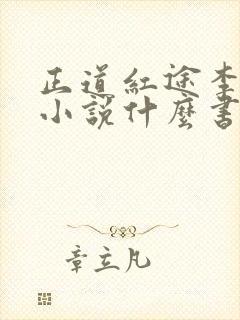 正道紅途李
小說什麼書
章立凡